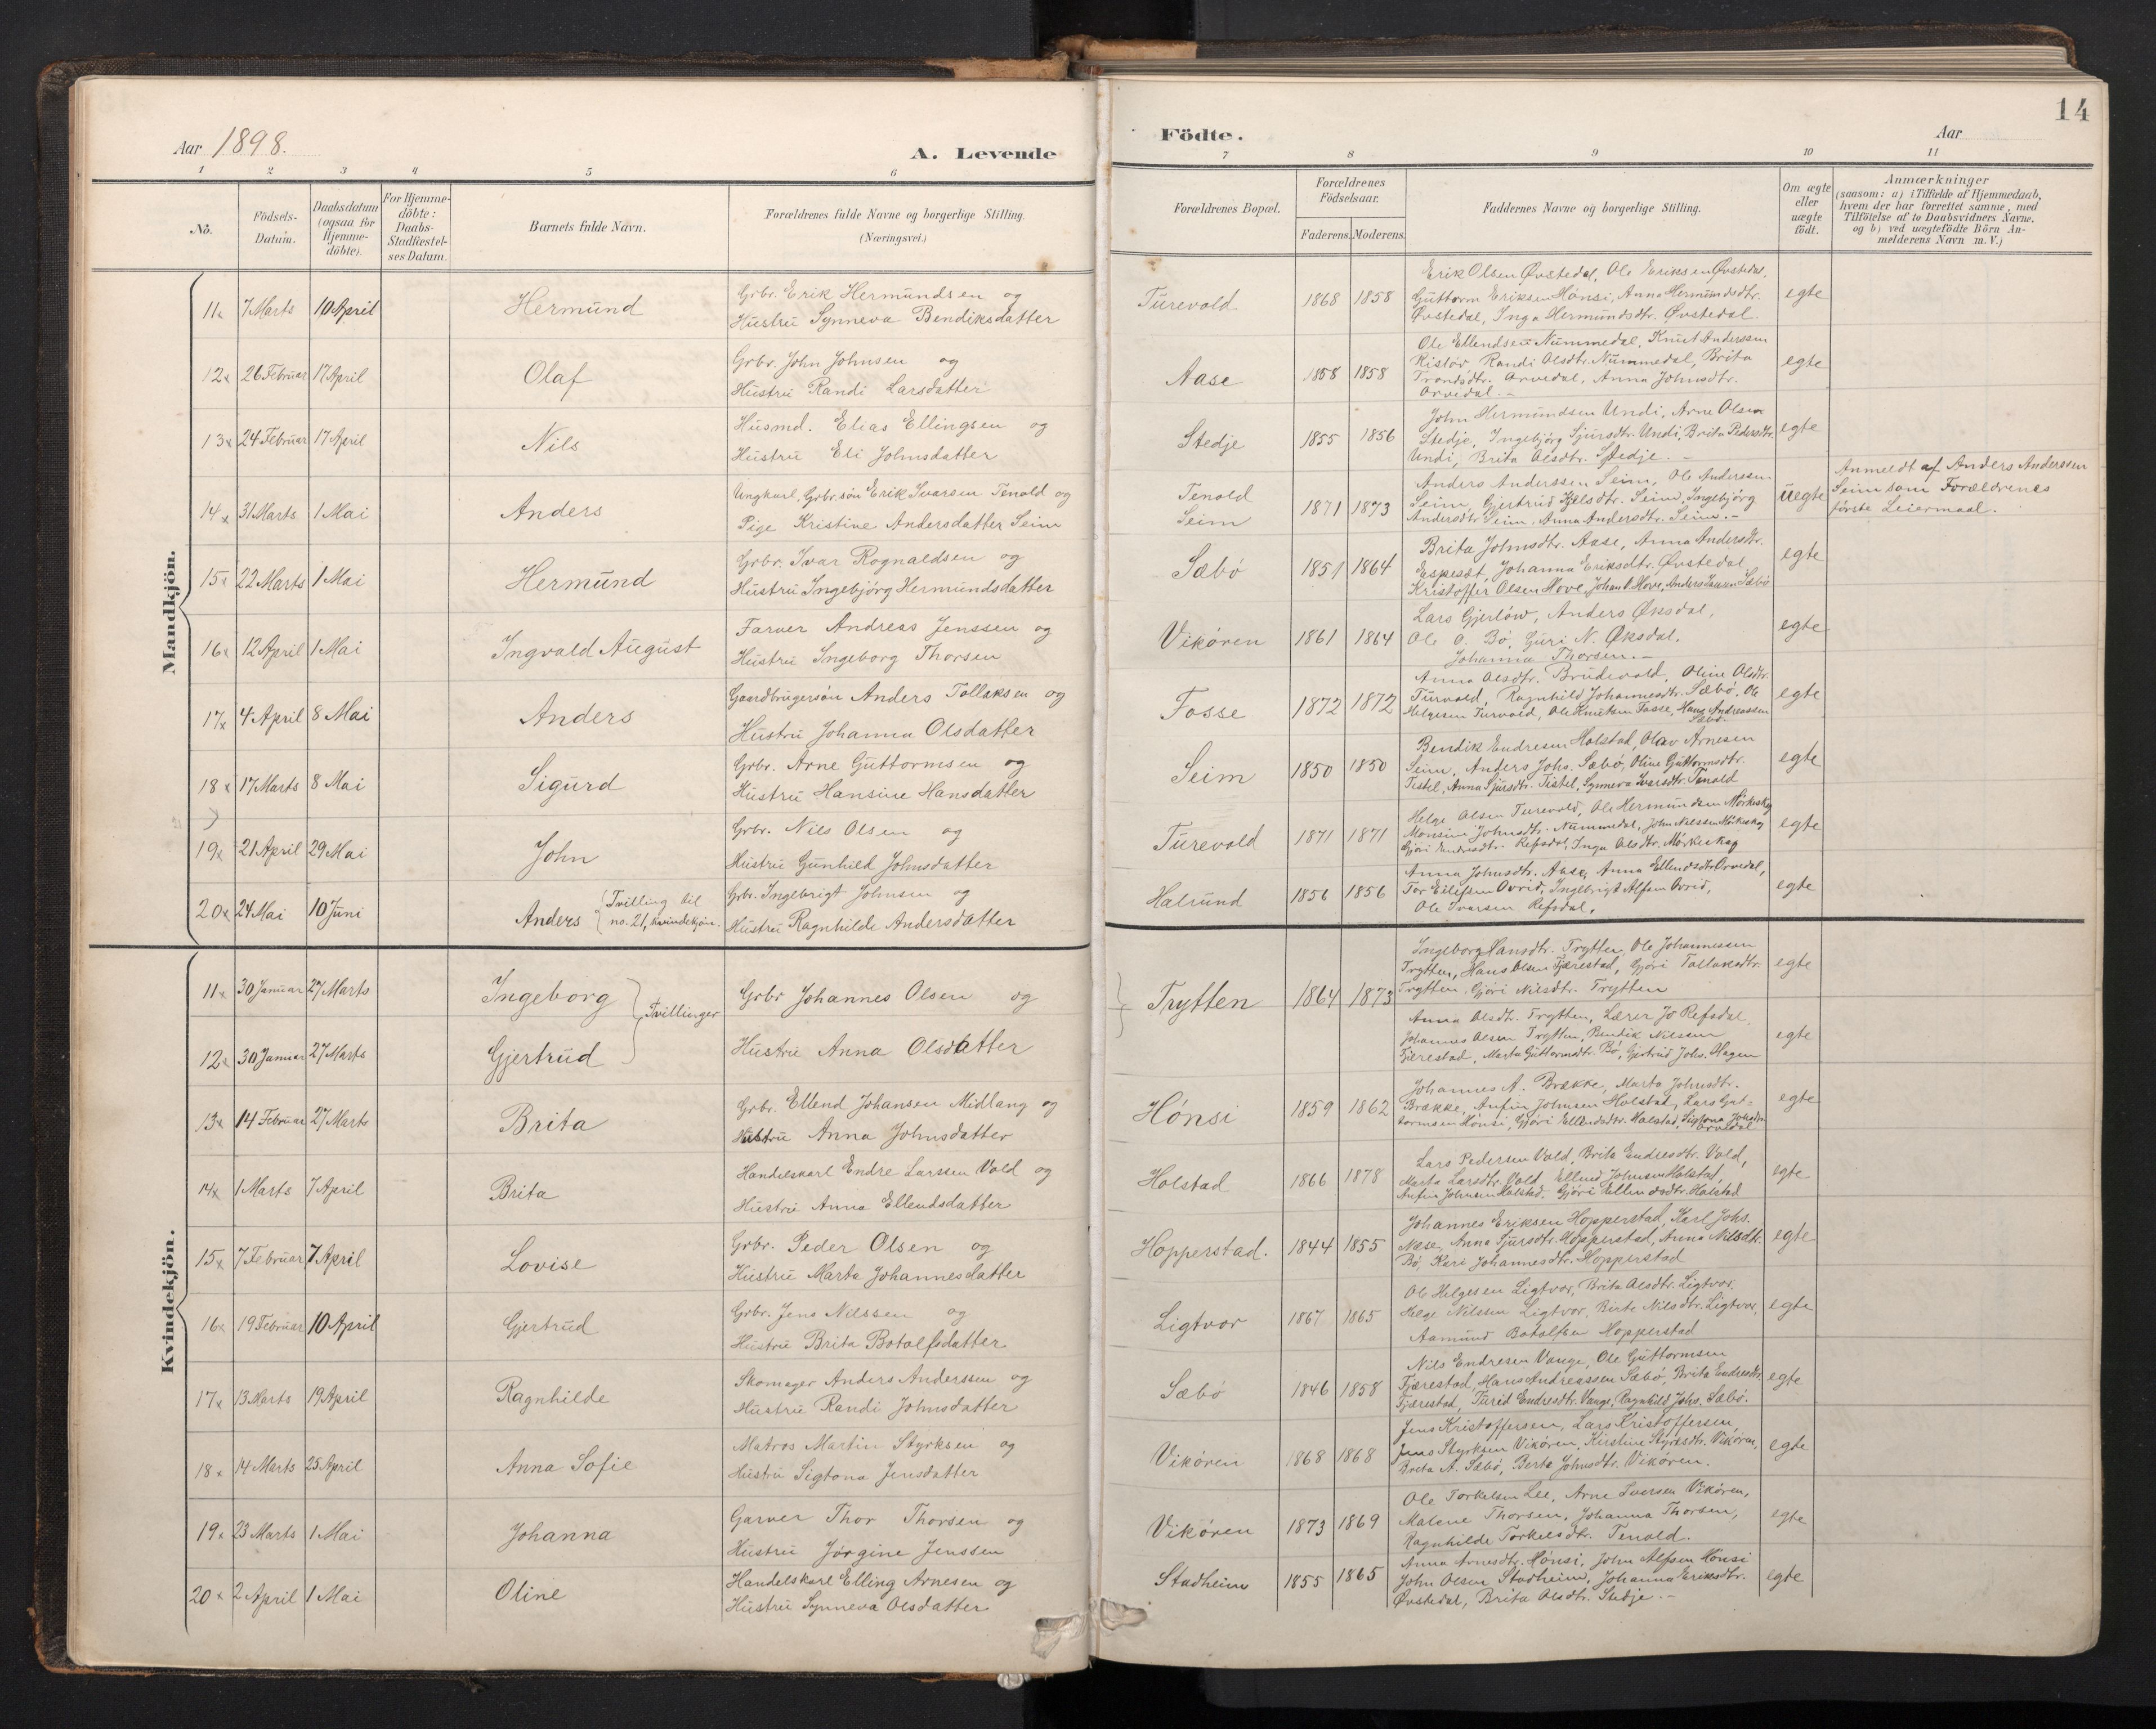 14
Aar 1898.
A. Levende
Födte.
Aar
1 2 3 4 5 6
7 8 9 10 11
No.
Födsels-
Datum.
Daabsdatum
(ogsaa for
Hjemme-
döbte).
For Hjemme-
döbte:
Daabs-
Stadfæstel-
ses Datum.
Barnets fulde Navn.
Forældrenes fulde Navne og borgerlige Stilling.
(Næringsvei.)
Forældrenes Bopæl.
Forældrenes
Födselsaar.
Faderens. Moderens.
Faddernes Navne og borgerlige Stilling.
Om ægte
eller
uægte
födt.
Anmærkninger
(saasom: a) i Tilfælde af Hjemmedaab,
hvem der har forrettet samme, med
Tilföielse af to Daabsvidners Navne,
og b) ved uægtefödte Börn An-
melderens Navn m. V.)
Mandkjön.
11x 7 Marts 10 April Hermund
Grbr. Erik Hermundsen og
Hustru Synneva Bendiksdatter
Turevold 1868 1858
Erik Olsen Øvstedal, Ole Eriksen Øvstedal,
Guttorm Eriksen Hønsi, Anna Hermundsdtr.
Øvstedal, Inga Hermundsdtr. Øvstedal.
egte
12x 26 Februar 17 April Olaf
Grbr. John Johnsen og
Hustru Randi Larsdatter
Aase 1858 1858
Ole Ellendsen Nummedal, Knut Anderssen
Ristør, Randi Olsdtr. Nummedal, Brita
Trondsdtr. Orvedal, Anna Johnsdtr.
Orvedal. -
egte
13x 24 Februar 17 April Nils
Husmd. Elias Ellingsen og
Hustru Eli Johnsdatter
Stedje 1855 1856
John Hermundsen Undi, Arne Olsen
Stedje, Ingebjørg Sjursdtr. Undi, Brita Pedersdtr.
Undi, Brita Olsdtr. Stedje. -
egte
14x 31 Marts 1 Mai Anders
Ungkarl, Grbr.søn Erik Ivarsen Tenold og
Pige Kristine Andersdatter Seim
Tenold
Seim
1871 1873
Anders Anderssen Seim, Ole Anderssen
Seim, Gjertrud Kjelsdtr. Seim, Ingebjörg
Andersdtr. Seim, Anna Andersdtr. Seim. -
uegte
Anmeldt af Anders Anderssen
Seim som Forældrenes
første Leiermaal.
15x 22 Marts 1 Mai Hermund
Grbr. Ivar Rognaldsen og
Hustru Ingebjörg Hermundsdatter
Sæbö 1851 1864
Brita Johnsdtr. Aase, Anna Andersdtr.
Espesdt, Johanna Eriksdtr. Øvstedal
Kristoffer Olsen Hove, Johan O. Hove, Anders Ivarsen Sæbö
egte
16x 12 April 1 Mai Ingvald August
Farver Andreas Jenssen og
Hustru Ingeborg Thorsen
Vikören 1861 1864
Lars Gjerlöw, Anders Øksdal,
Ole O. Bö, Guri N. Øksdal,
Johanna Thorsen. -
egte
17x 4 April 8 Mai Anders
Gaardbrugersøn Anders Tollaksen og
Hustru Johanna Olsdatter
Fosse 1872 1872
Anna Olsdtr. Brudevold, Oline Olsdtr.
Turvold, Ragnhild Johannesdtr. Sæbö, Ole
Helgesen Turvold, Ole Knutsen Fosse, Hans Andreassen
Sæbö.
egte
18x 17 Marts 8 Mai Sigurd
Grbr. Arne Guttormsen og
Hustru Hansine Hansdatter
Seim 1850 1850
Bendik Endresen Holstad, Olav Arnesen
Seim, Anders Johs. Sæbö, Oline Guttormsdtr.
Tistel, Anna Sjursdtr. Tistel, Synneva Ivarsdtr. Tenold
egte
19x 21 April 29 Mai John
Grbr. Nils Olsen og
Hustru Gunhild Johnsdatter
Turevold 1871 1871
Helge Olsen Turevold, Ole Hermundsen Mörkeskog
Monsine Johnsdtr. Nummedal, John Nilssen Mörkeskog
Gjöri Endresdtr. Refsdal, Inga Olsdtr. Mörkeskog
egte
20x 24 Mai 10 Juni Anders (Tvilling til
no. 21, kvindekjön.
Grbr. Ingebrigt Johnsen og
Hustru Ragnhilde Andersdatter
Halsund 1856 1856
Anna Johnsdtr. Aase, Anna Ellendsdtr. Orvedal,
Tor Eilifsen Ovrid, Ingebrigt Alfsen Ovrid,
Ole Ivarsen Refsdal.
egte
Kvindekjön.
11x 30 Januar 27 Marts Ingeborg
Tvillinger
Grbr Johannes Olsen og
Trytten 1864 1873
Ingeborg Hansdtr. Trytten, Ole Johannessen
Trytten, Hans Olsen Fjærestad, Gjöri Tollaksdtr.
Trytten, Gjöri Nilsdtr. Trytten
egte
12x 30 Januar 27 Marts Gjertrud
Hustru Anna Olsdatter
Anna Olsdtr. Trytten, Lærer Jo Refsdal,
Johannes Olsen Trytten, Bendik Nilssen
Fjærestad, Marta Guttormsdtr. Bö, Gjertrud Johs. Hagen
egte
13x 14 Februar 27 Marts Brita
Grbr. Ellend Johansen Midlang og
Hustru Anna Johnsdatter
Hónsi 1859 1862
Johannes A. Brække, Marta Johnsdtr.
Brække, Anfin Johnsen Holstad, Lars Gut-
tormsen Hónsi, Gjöri Ellendsdtr. Holstad, Sigtona Johsdtr.
Orvedal
egte
14x 1 Marts 7 April Brita
Handelskarl Endre Larssen Vold og
Hustru Anna Ellendsdatter
Holstad 1866 1878
Lars Pedersen Vold, Brita Endresdtr. Vold,
Marta Larsdtr. Vold, Ellend Johnsen Holstad,
Anfin Johnsen Holstad, Gjöri Ellendsdtr. Holstad
egte
15x 7 Februar 7 April Lovise
Grbr. Peder Olsen og
Hustru Marta Johannesdatter
Hopperstad. 1844 1855
Johannes Eriksen Hopperstad, Karl Johs.
Næse, Anna Sjursdtr. Hopperstad, Anna Nilsdtr.
Bö, Kari Johannesdtr. Hopperstad
egte
16x 19 Februar 10 April Gjertrud
Grbr. Jens Nilssen og
Hustru Brita Botolfsdatter
Ligtvor 1867 1865
Ole Helgesen Ligtvor, Brita Olsdtr. Ligtvor,
Helge Nilssen Ligtvor, Birte Nilsdtr. Ligtvor,
Aamund Botolfsen Hopperstad
egte
17x 13 Marts 19 April Ragnhilde
Skomager Anders Anderssen og
Hustru Randi Johnsdatter
Sæbö 1846 1858
Nils Endresen Vange, Ole Guttormsen
Fjærestad, Hans Andreassen Sæbö, Brita Endresdtr.
Fjærestad, Turid Endresdtr. Vange, Ragnhild Johs. Sæbö.
egte
18x 14 Marts 25 April Anna Sofie
Matros Martin Styrksen og
Hustru Sigtona Jensdatter
Vikören 1868 1868
Jens Kristoffersen, Lars Kristoffersen,
Jens Styrksen Vikören, Kirstine Styrksdtr. Vikören,
Breta A. Sæbö, Berta Johnsdtr. Vikören.
egte
19x 23 Marts 1 Mai Johanna
Garver Thor Thorsen og
Hustru Jörgine Jenssen
Vikören 1873 1869
Ole Torkelsen Lee, Arne Iversen Vikören,
Malene Thorsen, Johanna Thorsen,
Ragnhilde Torkelsdtr. Tenold.
egte
20x 2 April 1 Mai Oline
Handelskarl Elling Arnesen og
Hustru Synneva Olsdatter
Stadheim 1855 1865
Anna Arnesdtr. Hönsi, John Alfsen Hönsi
John Olsen Stadheim, Johanna Eriksdtr.
Øvstedal, Brita Olsdtr. Stedje. -
egte